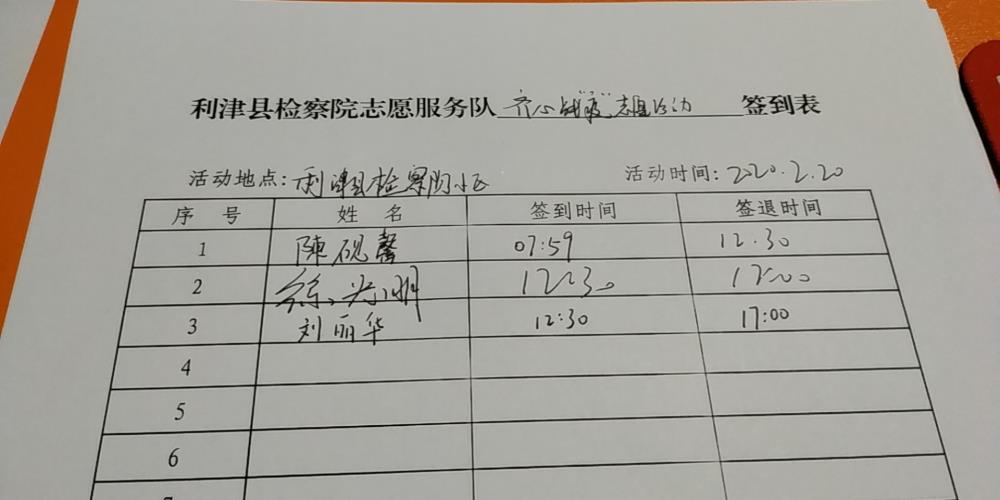 利津县检察院志愿服务队 齐心"战疫"志愿活动 签到表
活动地点:利津县检察院小区 活动时间:2020.2.20
序 号 姓 名 签到时间 签退时间
1 陳砚馨 07:59 12.30
2 12:30 17:00
3 刘丽华 12:30 17:00
4
5
6
7